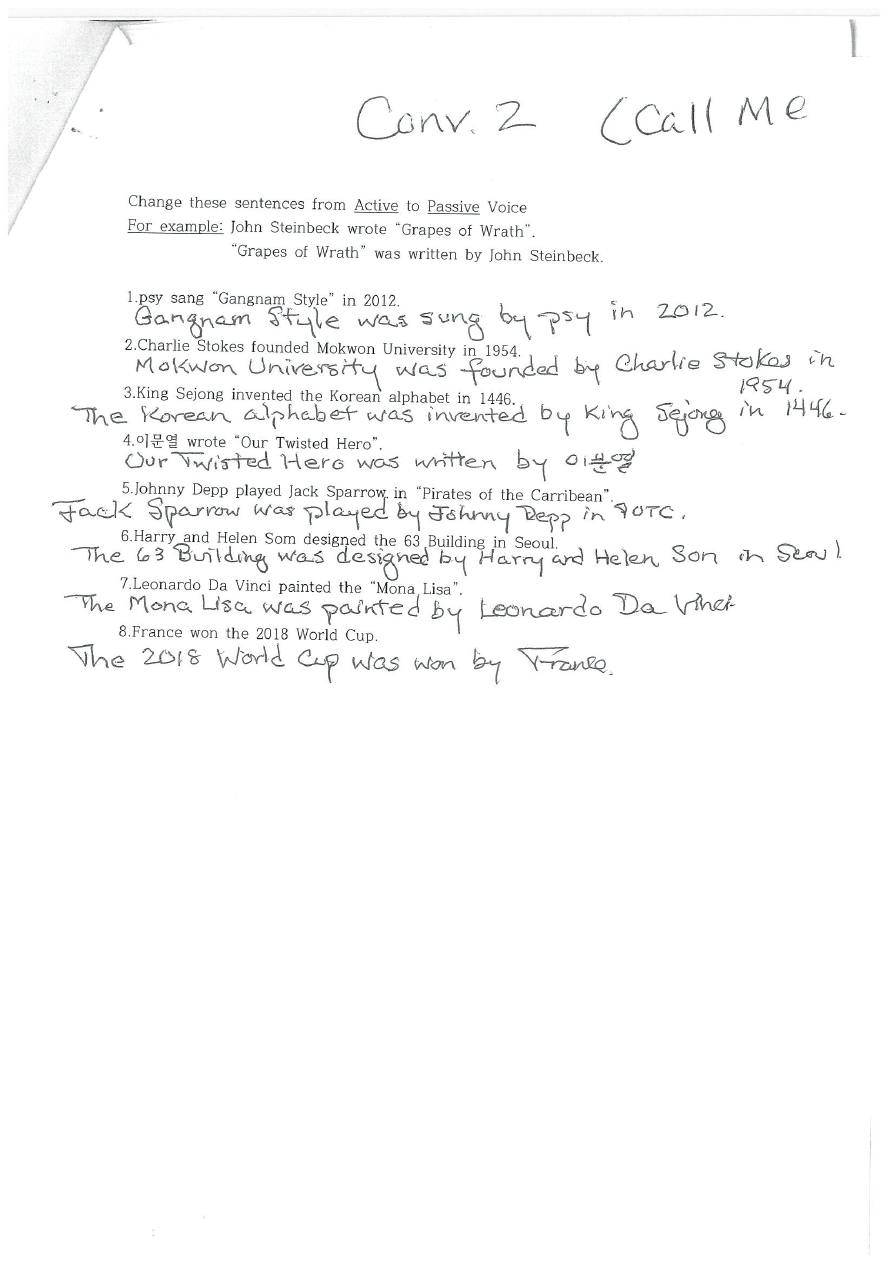 Conv. 2 (Call Me
Change these sentences from Active to Passive Voice
For example: John Steinbeck wrote "Grapes of Wrath".
"Grapes of Wrath" was written by John Steinbeck.
1.psy sang "Gangnam Style" in 2012.
Gangnam Style was sung by psy in 2012.
2.Charlie Stokes founded Mokwon University in 1954.
Mokwon University was founded by Charlie Stokes in
1954.
3.King Sejong invented the Korean alphabet in 1446.
The Korean alphabet was invented by King Sejong in 1446.
4.이문열 wrote "Our Twisted Hero".
Our Twisted Hero was written by 이문열
5.Johnny Depp played Jack Sparrow in "Pirates of the Carribean".
Jack Sparrow was played by Johnny Depp in POTC.
6.Harry and Helen Som designed the 63 Building in Seoul.
The 63 Building was designed by Harry and Helen Son in Seoul
7.Leonardo Da Vinci painted the "Mona Lisa".
The Mona Lisa was painted by Leonardo Da Vinci
8.France won the 2018 World Cup.
The 2018 World Cup was won by France.